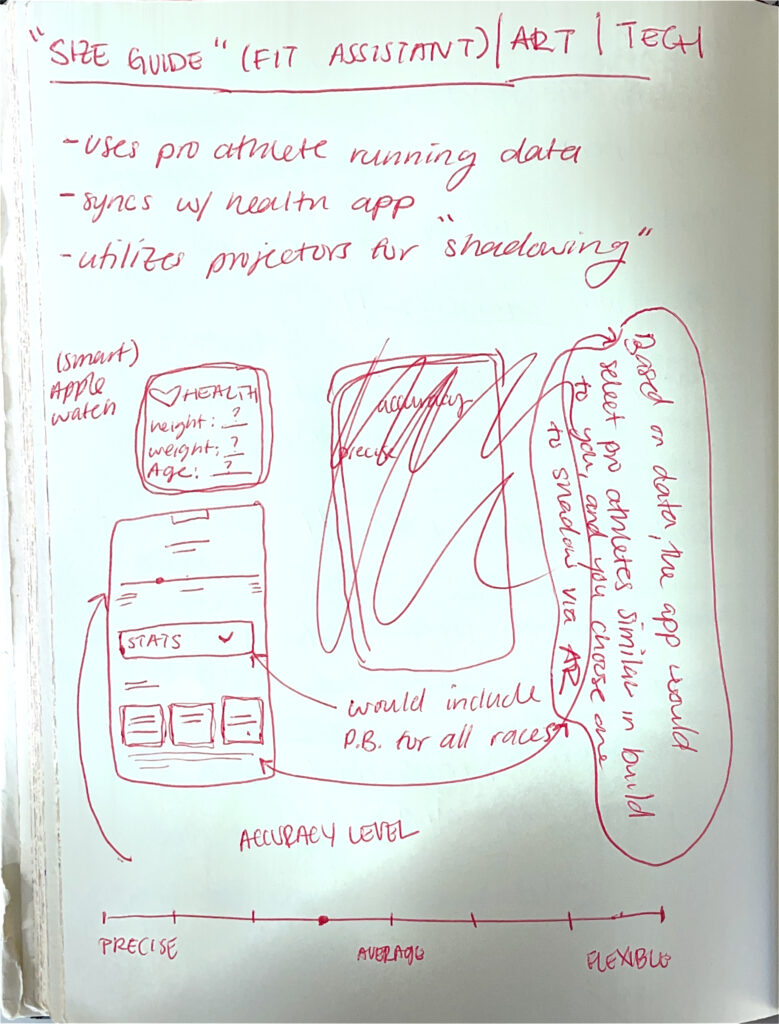 "SIZE GUIDE" (FIT ASSISTANT) | ART | TECH
- uses pro athlete running data
- syncs w/ health app
- utilizes projectors for "shadowing"
(smart)
Apple
watch
♡ HEALTH
height: ?
weight: ?
Age: ?
accuracy
precise
Based on data, the app would
select pro athletes similar in build
to you, and you choose one
to shadow via AR
STATS
would include
P.B. for all races
ACCURACY LEVEL
PRECISE
AVERAGE
FLEXIBLE